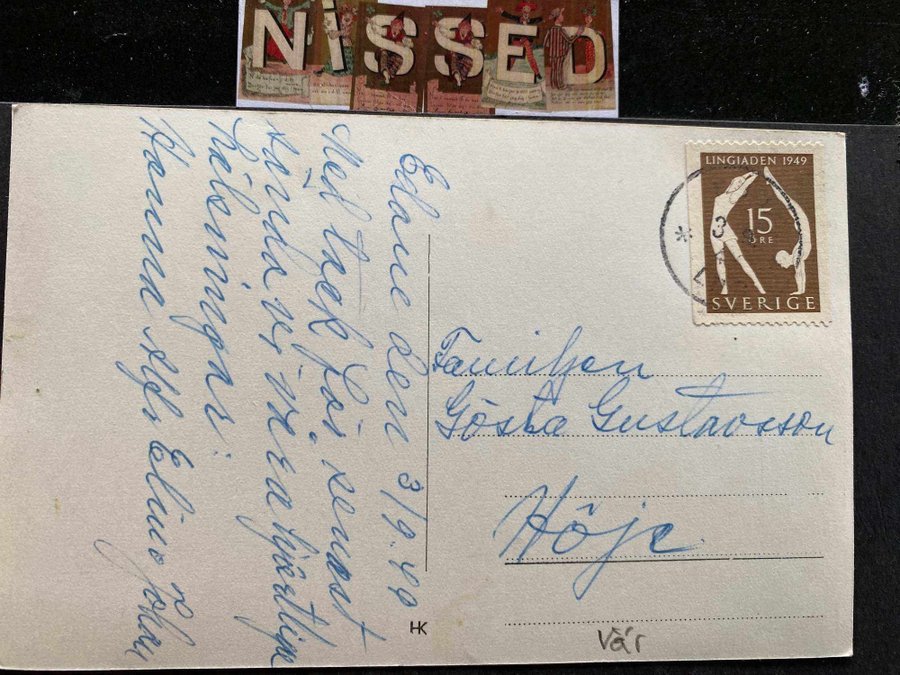 NISSED
Edane den 3/9.49
Med tack för senast
sända vi Våra hjärtliga
hälsningar.
Hanna Sigr. Elin o Johan
LINGIADEN 1949
15
ÖRE
SVERIGE
* 3
Familjen
Gösta Gustavsson
Höje
HK
Vär